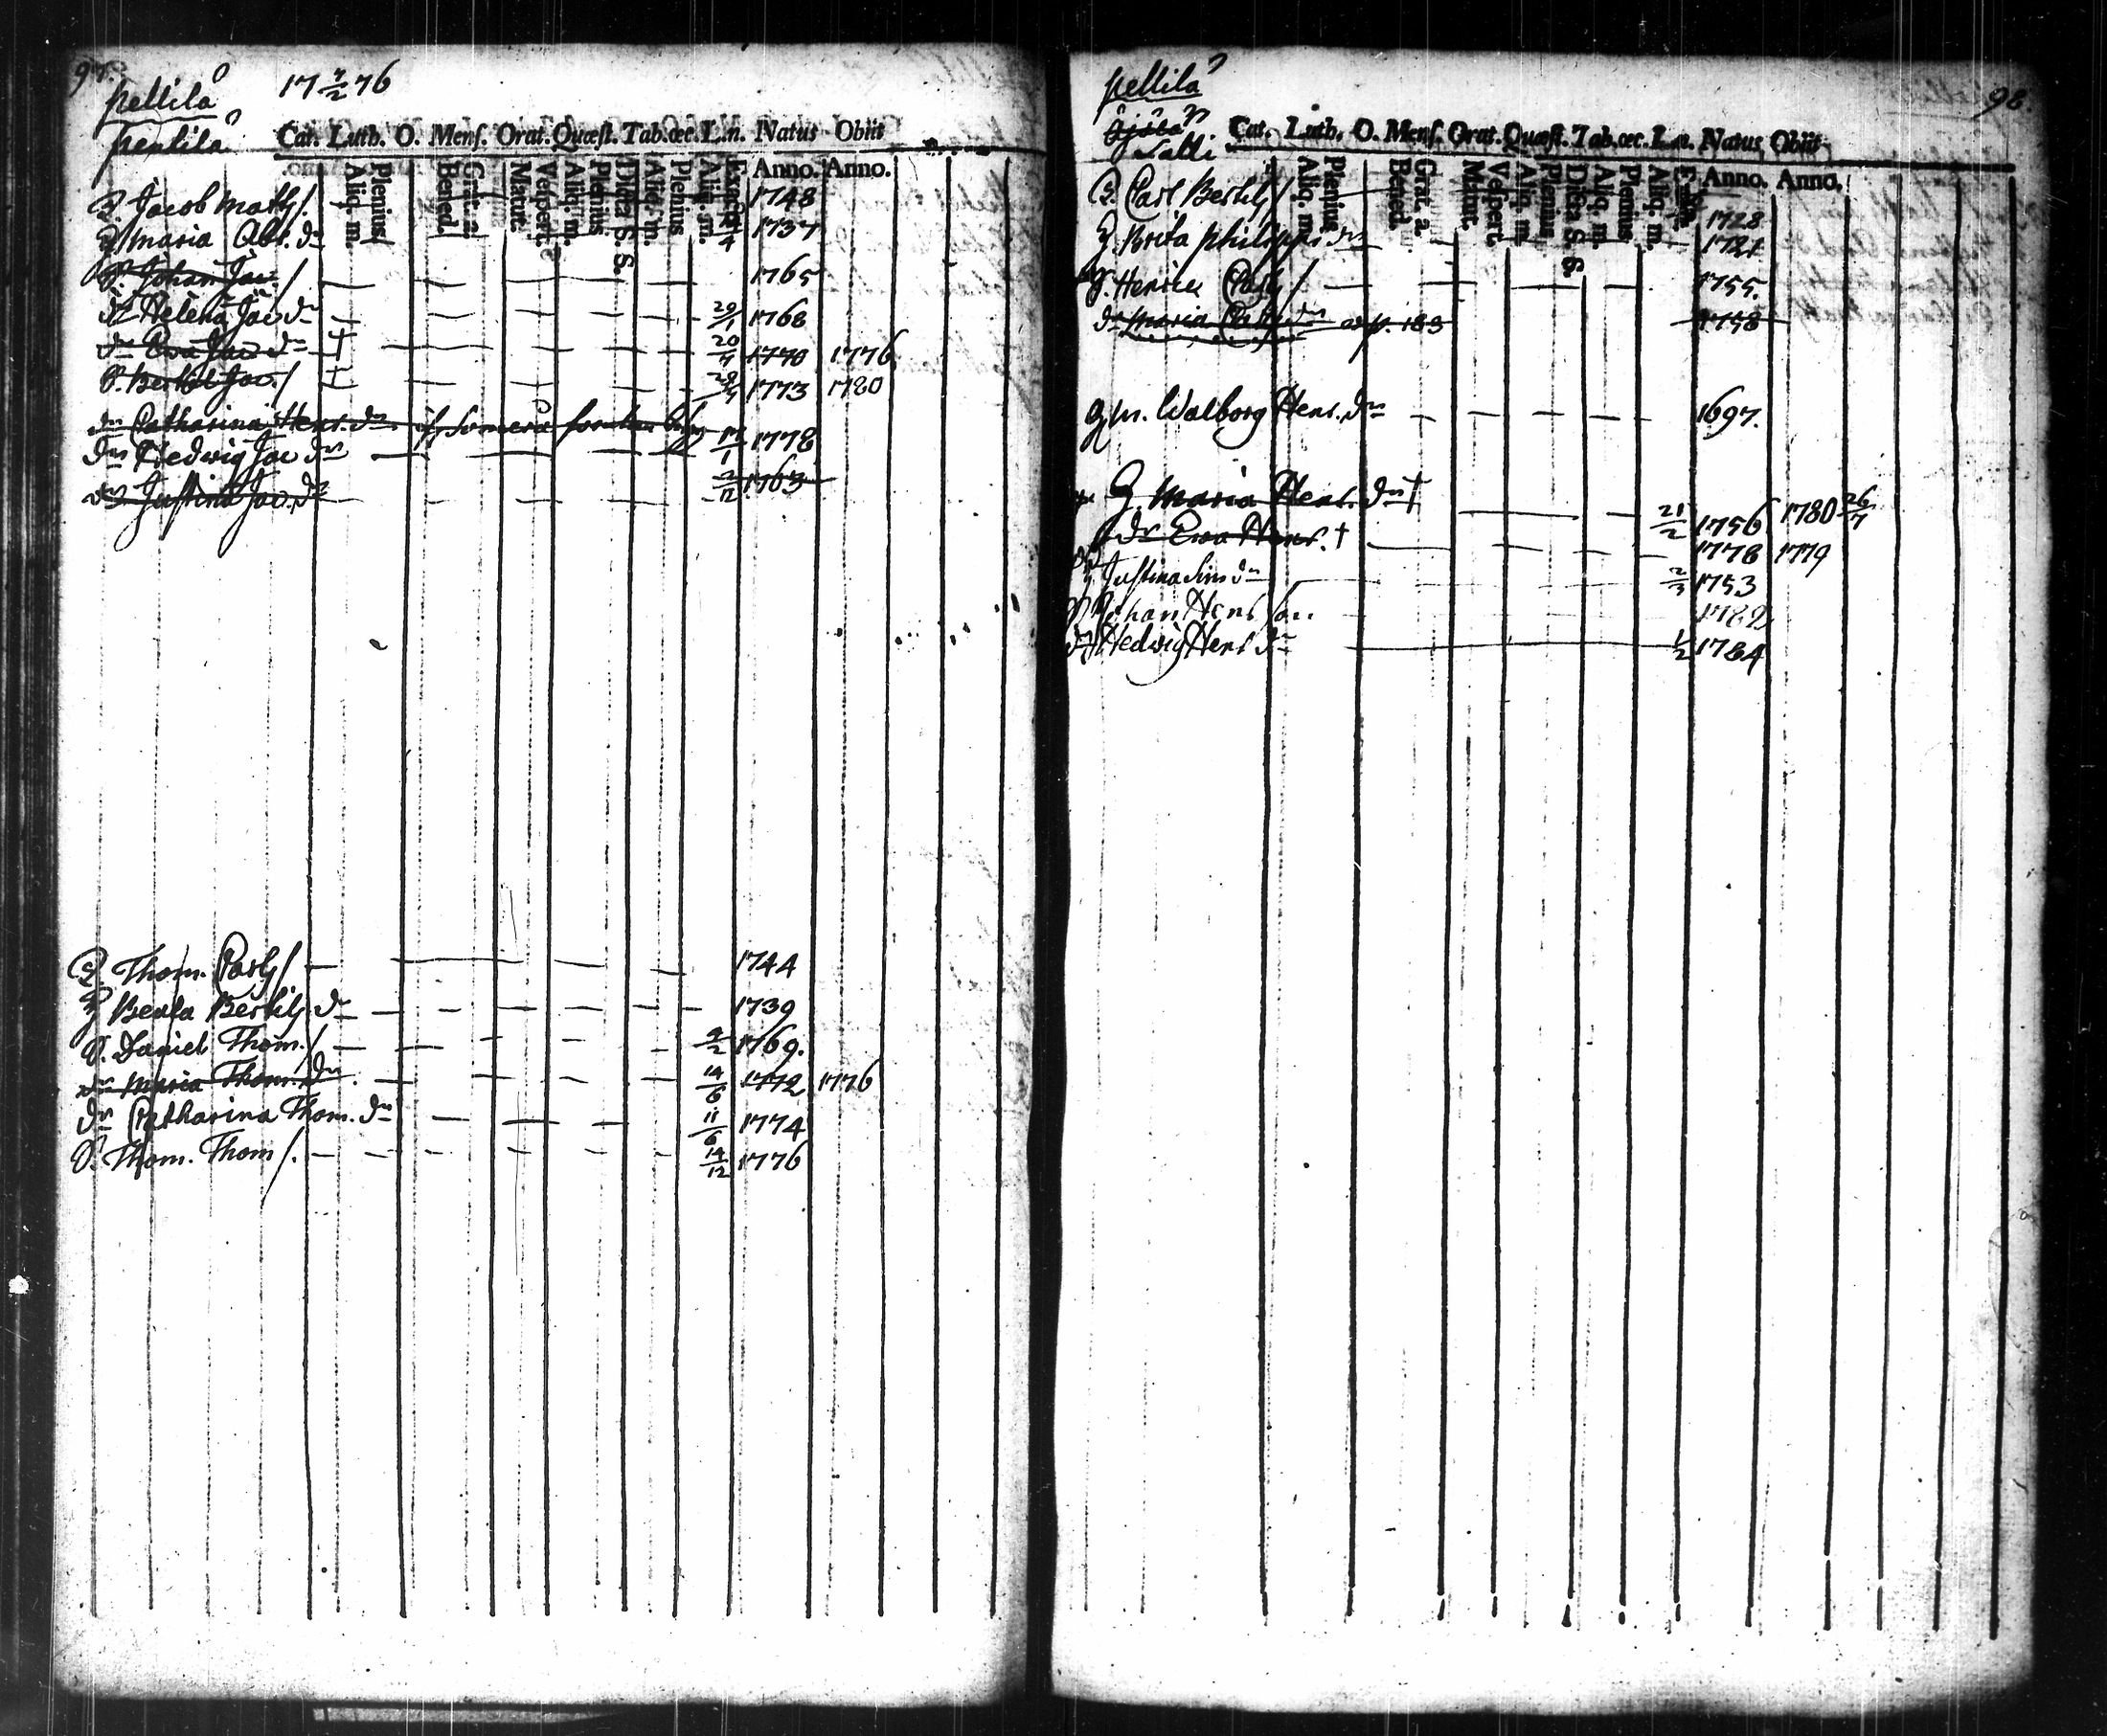 97.
pellilä
17 7/2 76
pentilä
Cat. Luth. O. Mens. Orat. Quæst. Tab. œc. L. n. Natus Obiit
Aliq. m. Plenius Bened. Grat. a. Matut. Vespert. Aliq. m. Plenius Dicta S. S. Aliq. m. Plenius Aliq. m. Exacte Anno. Anno.
B. Jacob Math. s. 1748
H. Maria Abr. dr 4 1737
S. Johan Jac. s. 1765
dr Helena Jac dr 29/1 1768
dr Ewa Jac dr † 20/4 1770 1776
S. Bertel Jac. s. † 28/4 1773 1780
dr Catharina Henr. dr
dr Hedwig Jac dr 17/1 1778
dr Justina Jac. dr 2/12 1763
B. Thom. Carls s. 1744
H. Beata Bertils dr 1739
S. Daniel Thom. s. 9/2 1769.
dr Maria Thom. dr. 14/6 1772 1776
dr Catharina Thom. dr 11/6 1774
S. Thom. Thom s. 14/12 1776
98.
pellilä
Sjölä
Salli
Cat. Luth. O. Mens. Orat. Quæst. Tab. œc. L. n. Natus Obiit
Aliq. m. Plenius Bened. Grat. a. Matut. Vespert. Aliq. m. Plenius Dicta S. S. Aliq. m. Plenius Aliq. m. Exacte Anno. Anno.
B. Carl Bertils s. 1728
H. Brita Philipps dr 1721
S. Henric Carls s. 1755.
dr Maria Carls dr ad p. 183 1758
gm. Walborg Henr. dr 1697.
H. Maria Henr. dr † 21/2 1756 1780 26/7
dr Ewa Henr. † 1778 1779
H Justina Sim dr 2/3 1753
S Johan Henr Son 1782
dr Hedwig Henr dr 1/2 1784